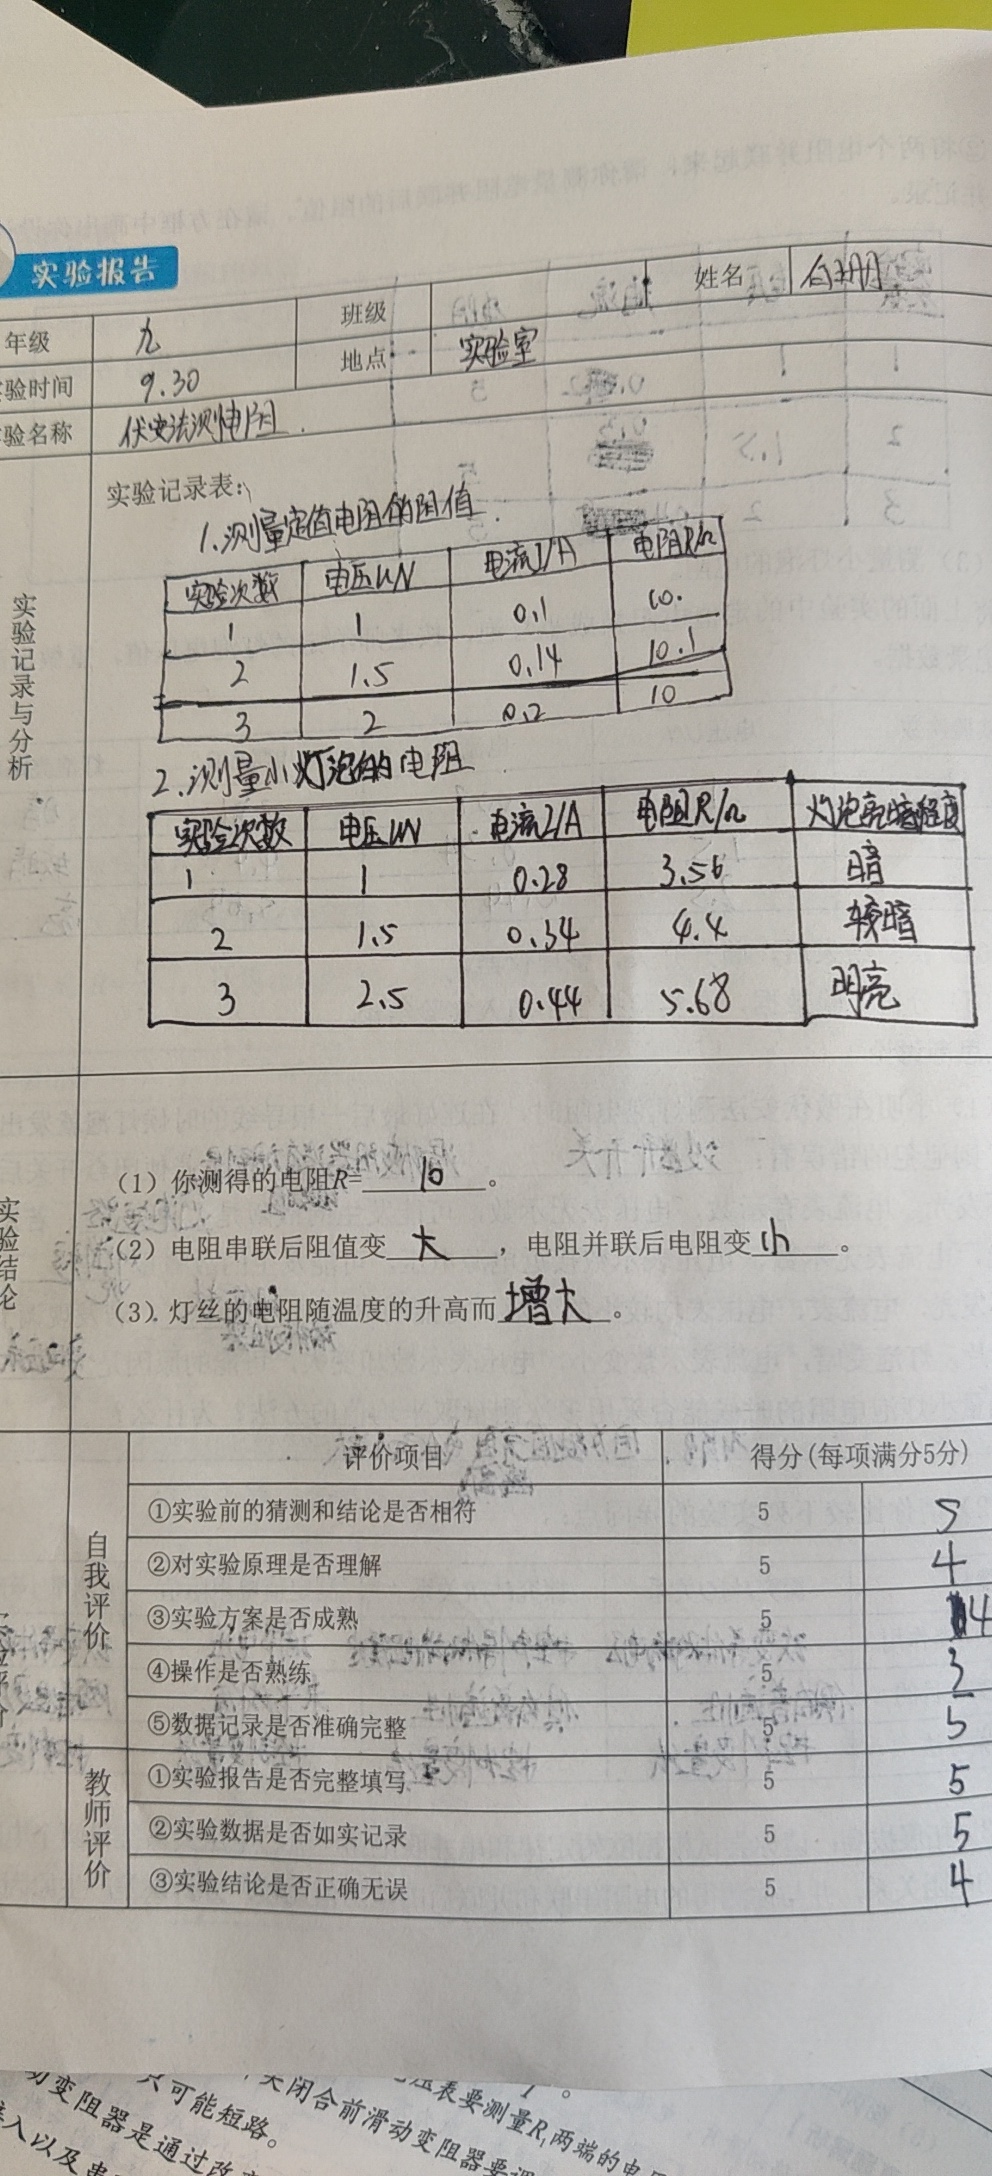 实验报告
姓名
年级 九 班级
验时间 9.30 地点 实验室
验名称 伏安法测电阻.
实验记录与分析
实验记录表:
1.测量定值电阻的阻值.
实验次数 电压U/V 电流I/A 电阻R/Ω
1 1 0.1 10.
2 1.5 0.14 10.1
3 2 0.2 10
2.测量小灯泡的电阻
实验次数 电压U/V 电流I/A 电阻R/Ω 灯泡亮暗程度
1 1 0.28 3.56 暗
2 1.5 0.34 4.4 较暗
3 2.5 0.44 5.68 明亮
实验结论
(1) 你测得的电阻R=10。
(2) 电阻串联后阻值变大,电阻并联后电阻变小。
(3) 灯丝的电阻随温度的升高而增大。
评价项目 得分(每项满分5分)
自我评价
①实验前的猜测和结论是否相符 5 5
②对实验原理是否理解 5 4
③实验方案是否成熟 5 4
④操作是否熟练 5 3
⑤数据记录是否准确完整 5 5
教师评价
①实验报告是否完整填写 5 5
②实验数据是否如实记录 5 5
③实验结论是否正确无误 5 4
压表要测量R1两端的电
关闭合前滑动变阻器要调
只可能短路。
动变阻器是通过改